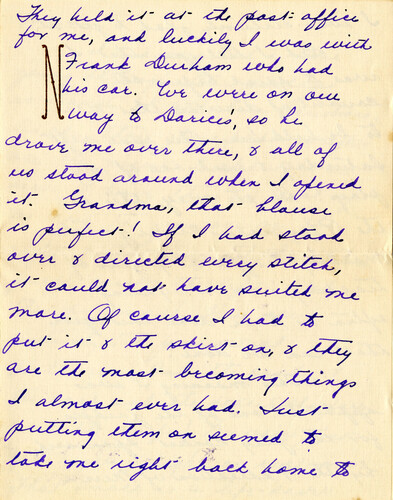 They held it at the post office
for me, and luckily I was with
N
Frank Durham who had
his car. We were on our
way to Daricis', so he
drove me over there, & all of
us stood around when I opened
it. Grandma, that blouse
is perfect! If I had stood
over & directed every stitch,
it could not have suited me
more. Of course I had to
put it & the skirt on, & they
are the most becoming things
I almost ever had. Just
putting them on seemed to
take me right back home to